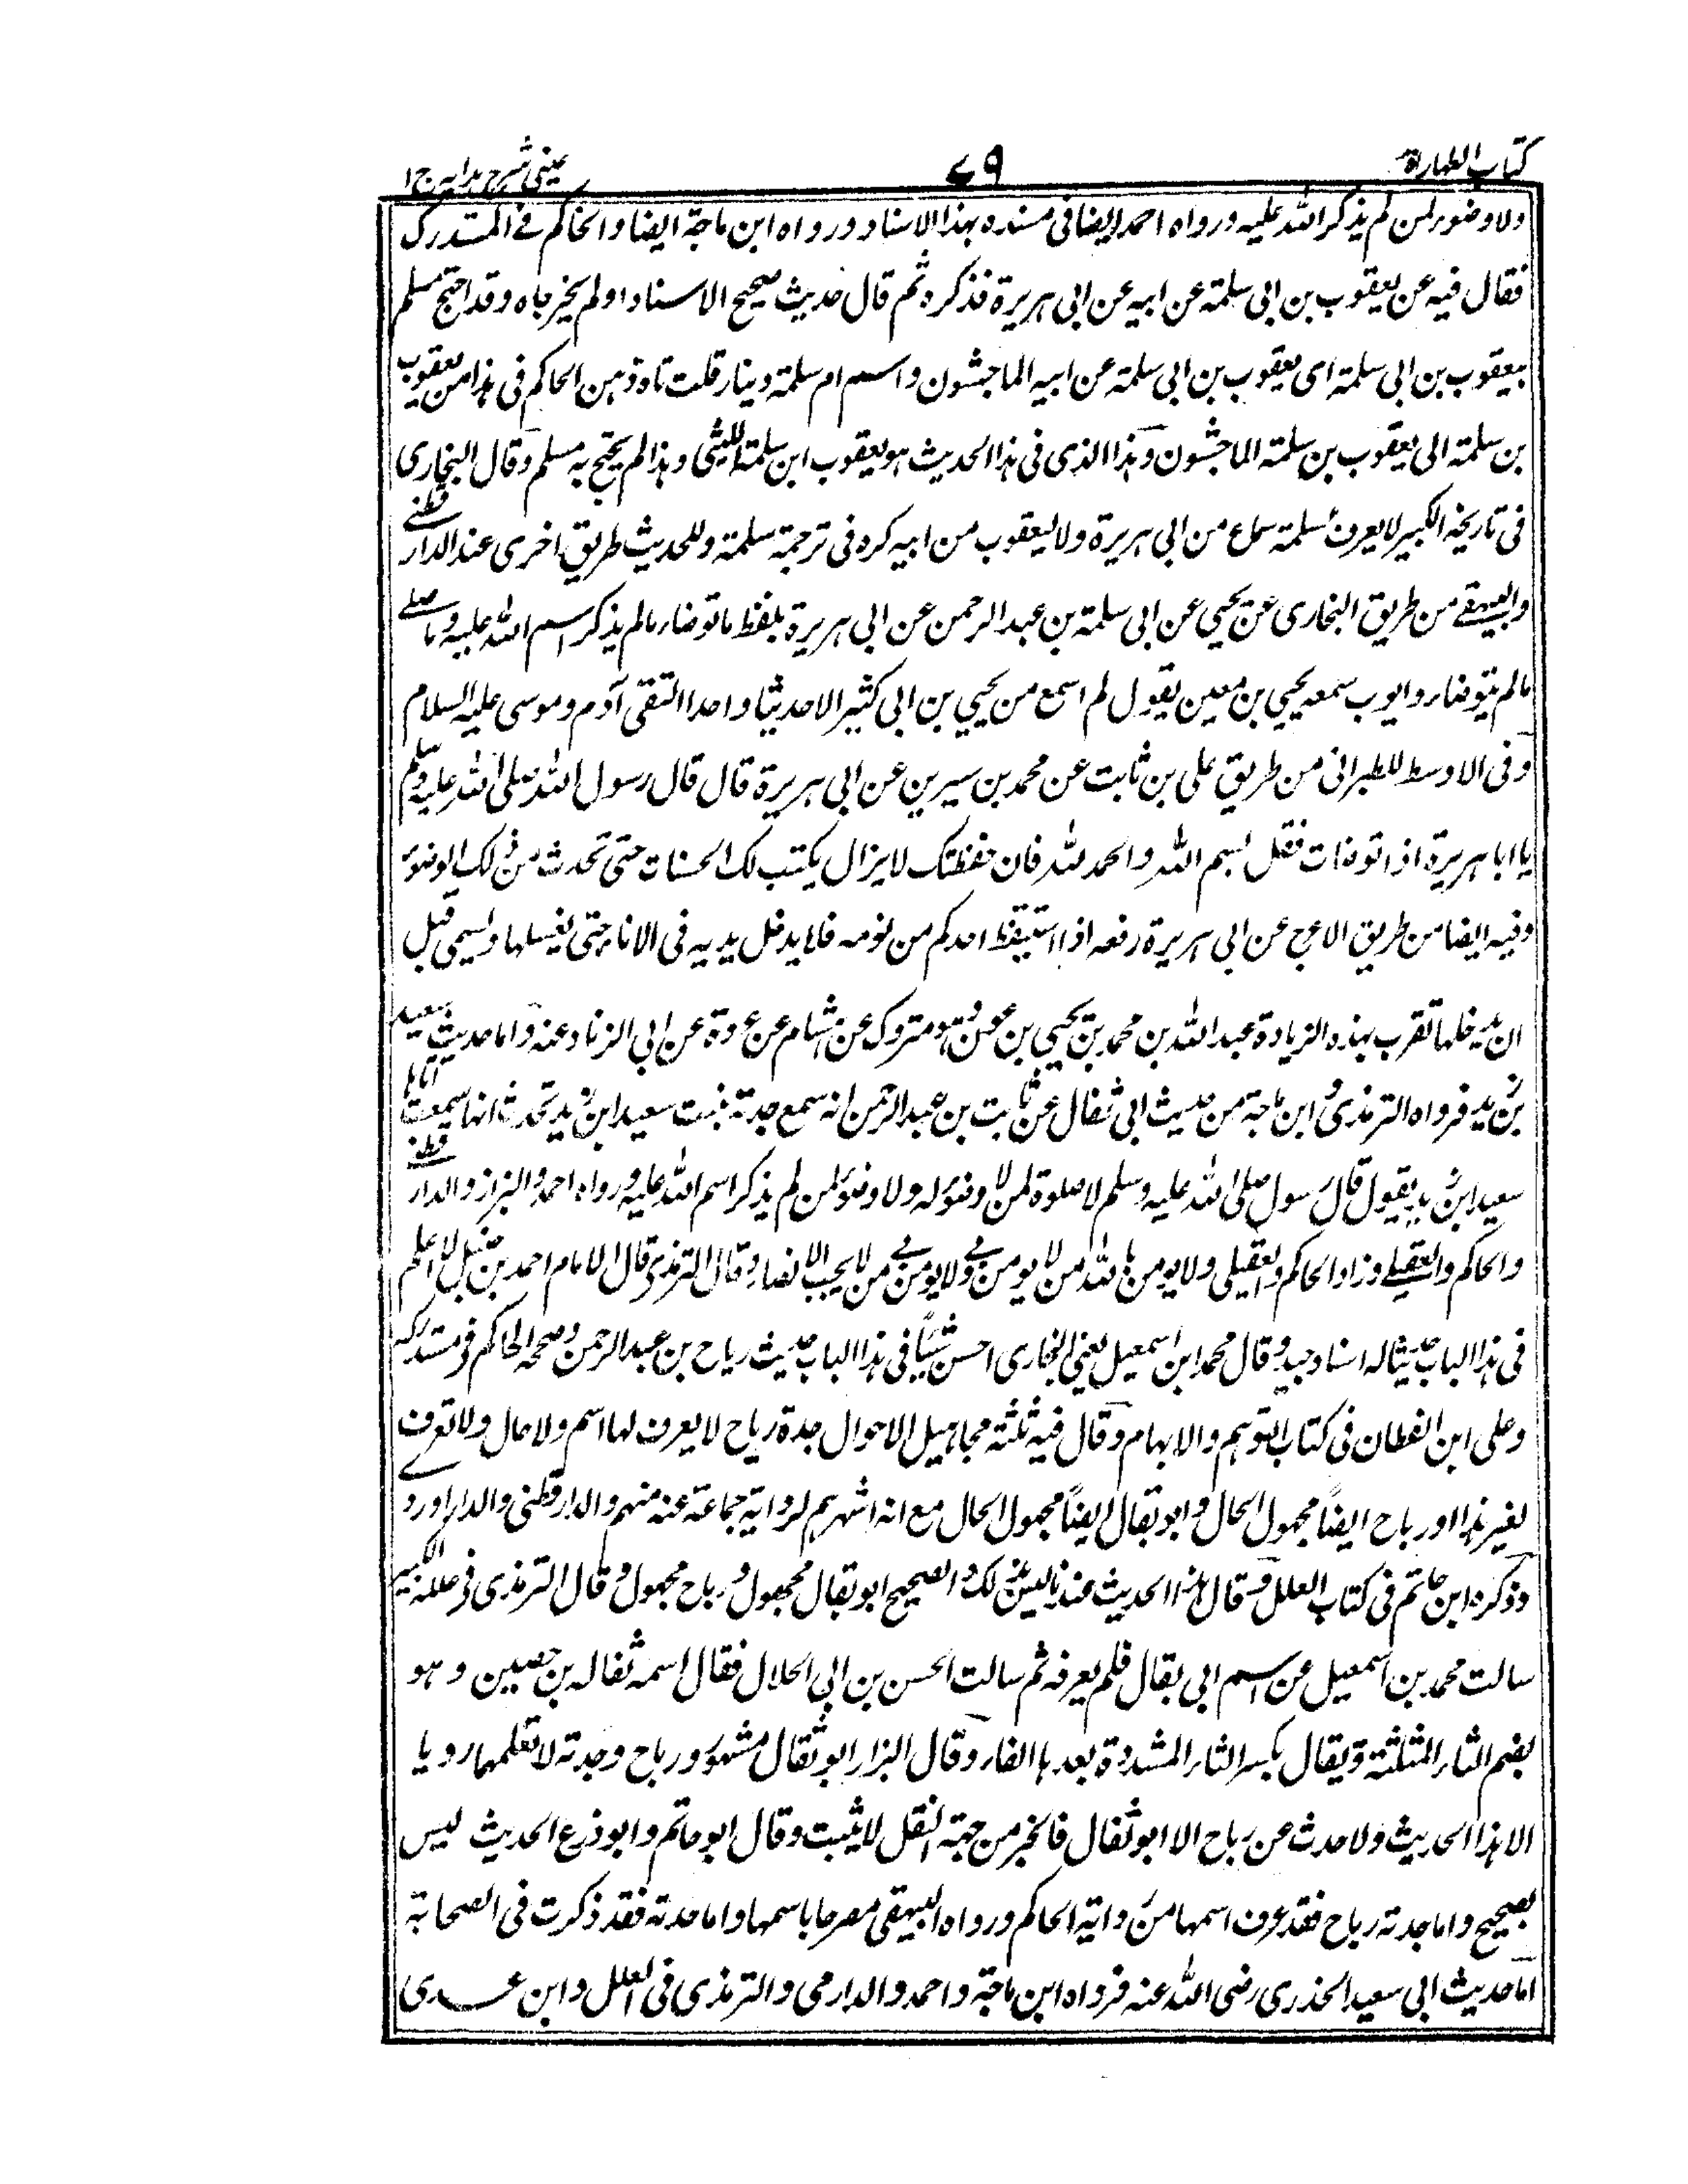 كتاب الطهارة ٧٩ عینی شرح هدایہ ج ١
ولا وضوء لمن لم يذكر الله عليه ورواه احمد ايضا فى مسنده بهذا الاسناد ورواه ابن ماجة ايضا والحاكم فى المستدرك
فقال فيه عن يعقوب بن ابى سلمة عن ابيه عن ابى هريرة فذكره ثم قال حديث صحيح الاسناد ولم يخرجاه وقد احتج مسلم
بيعقوب بن ابى سلمة اى يعقوب بن ابى سلمة عن ابيه الماجشون واسم ام سلمة دينار قلت تاه ذهن الحاكم فى هذا من يعقوب
بن سلمة الى يعقوب بن سلمة الماجشون وهذا الذى فى هذا الحديث هو يعقوب ابن سلمة الليثى وهذا لم يحتج به مسلم وقال البخارى
فى تاريخه الكبير لا يعرف لسلمة سماع من ابى هريرة ولا ليعقوب من ابيه كره فى ترجمة سلمة وللحديث طريق اخرى عند الدارقطنے
والبيهقے من طريق البخارى عن يحيى عن ابى سلمة بن عبد الرحمن عن ابى هريرة بلفظ ما توضاء مالم يذكر اسم الله عليه وما صلے
مالم يتوضاء وايوب سمعه يحيى بن معين يقول لم اسمع من يحيى بن ابى كثير الا حديثا واحدا التقى آدم وموسى عليه السلام
وفى الاوسط للطبرانى من طريق على بن ثابت عن محمد بن سيرين عن ابى هريرة قال قال رسول الله صلى الله عليه وسلم
يا ابا هريرة اذا توضات فقل بسم الله والحمد لله فان حفظتك لا يزال يكتب لك الحسنات حتى تحدث من ذلك الوضوء
وفيه ايضا من طريق الاعرج عن ابى هريرة رفعه اذا استيقظ احدكم من نومه فلا يدخل يديه فى الاناء حتى يغسلها ويسمى قبل
ان يدخلها تقرب بهذه الزيادة عبد الله بن محمد بن يحيى بن عروة وهو متروك عن هشام عن عروة عن ابى الزناد عنه واما حديث سعيد
بن زيد فرواه الترمذى وابن ماجة من حديث ابى ثفال عن ثابت بن عبد الرحمن انه سمع جدته بنت سعيد ابن زيد تحدث انها سمعت اباها
سعيد ابن زيد يقول قال رسول صلى الله عليه وسلم لا صلوة لمن لا وضوء له ولا وضوء لمن لم يذكر اسم الله عليه ورواه احمد والبزار والدارقطنے
والحاكم والعقيلے وزاد الحاكم والعقيلى ولا يومن بالله من لا يومن بى ولا يومن بى من لا يحب الانصار وقال الترمذى قال الامام احمد بن حنبل لا اعلم
فى هذا الباب حديثا له اسناد جيد وقال محمد ابن اسمعيل يعنى البخارى احسن شيئًا فى هذا الباب حديث رباح بن عبد الرحمن وصححه الحاكم فى مستدركه
وعلى ابن القطان فى كتاب التوهم والابهام وقال فيه ثلثة مجاهيل الاحوال جدة رباح لا يعرف لها اسم ولا حال ولا تعرف
لغير هذا اور باح ايضًا مجهول الحال وابو ثقال ايضًا مجهول الحال مع انه اشهرهم لرواية جماعة عنه منهم والدارقطنى والدراوردے
وذكره ابن حاتم فى كتاب العلل وقال هذا الحديث عندنا ليس بذلك الصحيح ابو ثقال مجهول ورباح مجهول وقال الترمذى فى علله الكبير
سالت محمد بن اسمعيل عن اسم ابى بقال فلم يعرفه ثم سالت الحسن بن ابى الحلال فقال اسمه ثفاله بن حصين وهو
بضم الثاء المثلثة ويقال بكسر الثاء المشددة بعدها الفاء وقال البزار ابو ثقال مشهور ورباح وجدته لا تعلمهما رويا
الا هذا الحديث ولا حدث عن رباح الا ابو ثفال فالخبر من جهة النقل لا يثبت وقال ابو حاتم وابو ذرع الحديث ليس
بصحيح واما جدته رباح فقد عرف اسمها من رواية الحاكم ورواه البيهقى مصرحا باسمها واما حدته فقد ذكرت فى الصحابة
اما حديث ابى سعيد الخذرى رضى الله عنه فرواه ابن ماجة واحمد والدارمى والترمذى فى العلل وابن عدى